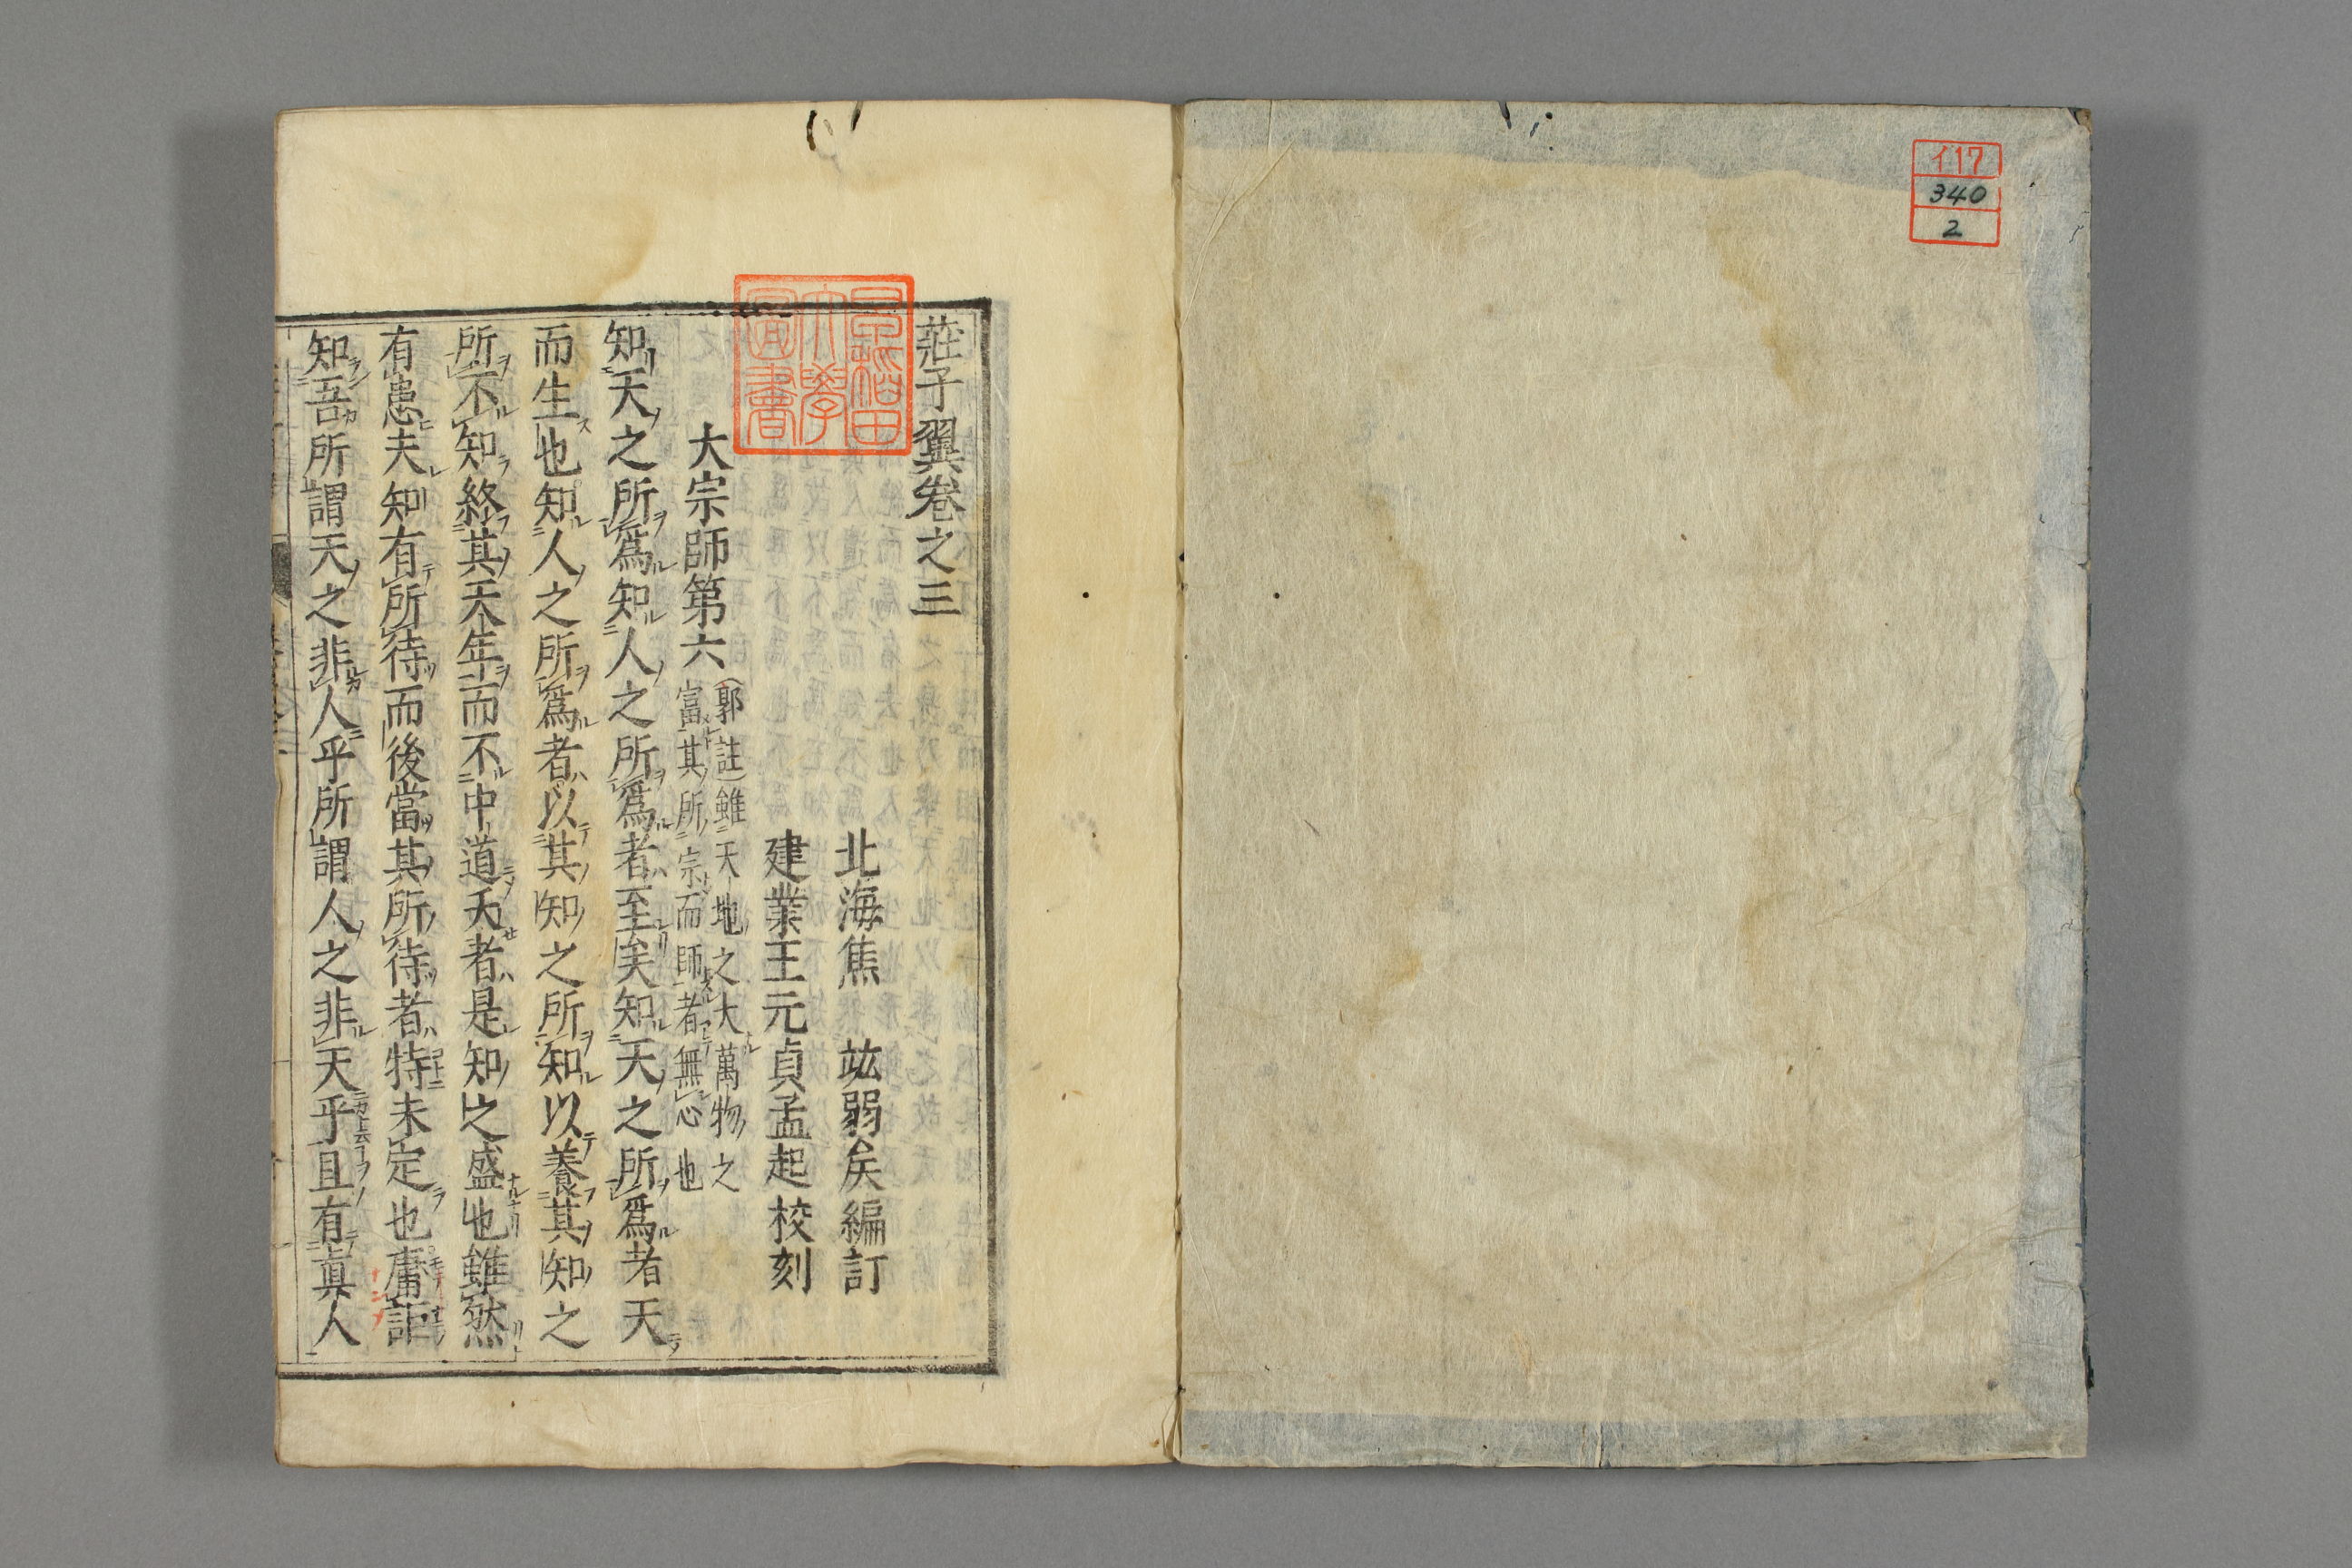 イ17
340
2
莊子翼卷之三
早稻田
大學
圖書
北海焦　竑弱矦編訂
建業王元貞孟起校刻
大宗師第六
(郭註)雖天地之大萬物之
富其所宗而師者無心也
知天之所爲知人之所爲者至矣知天之所爲者天
而生也知人之所爲者以其知之所知以養其知之
所不知終其天年而不中道夭者是知之盛也雖然
有患夫知有所待而後當其所待者特未定也庸詎
知吾所謂天之非人乎所謂人之非天乎且有眞人